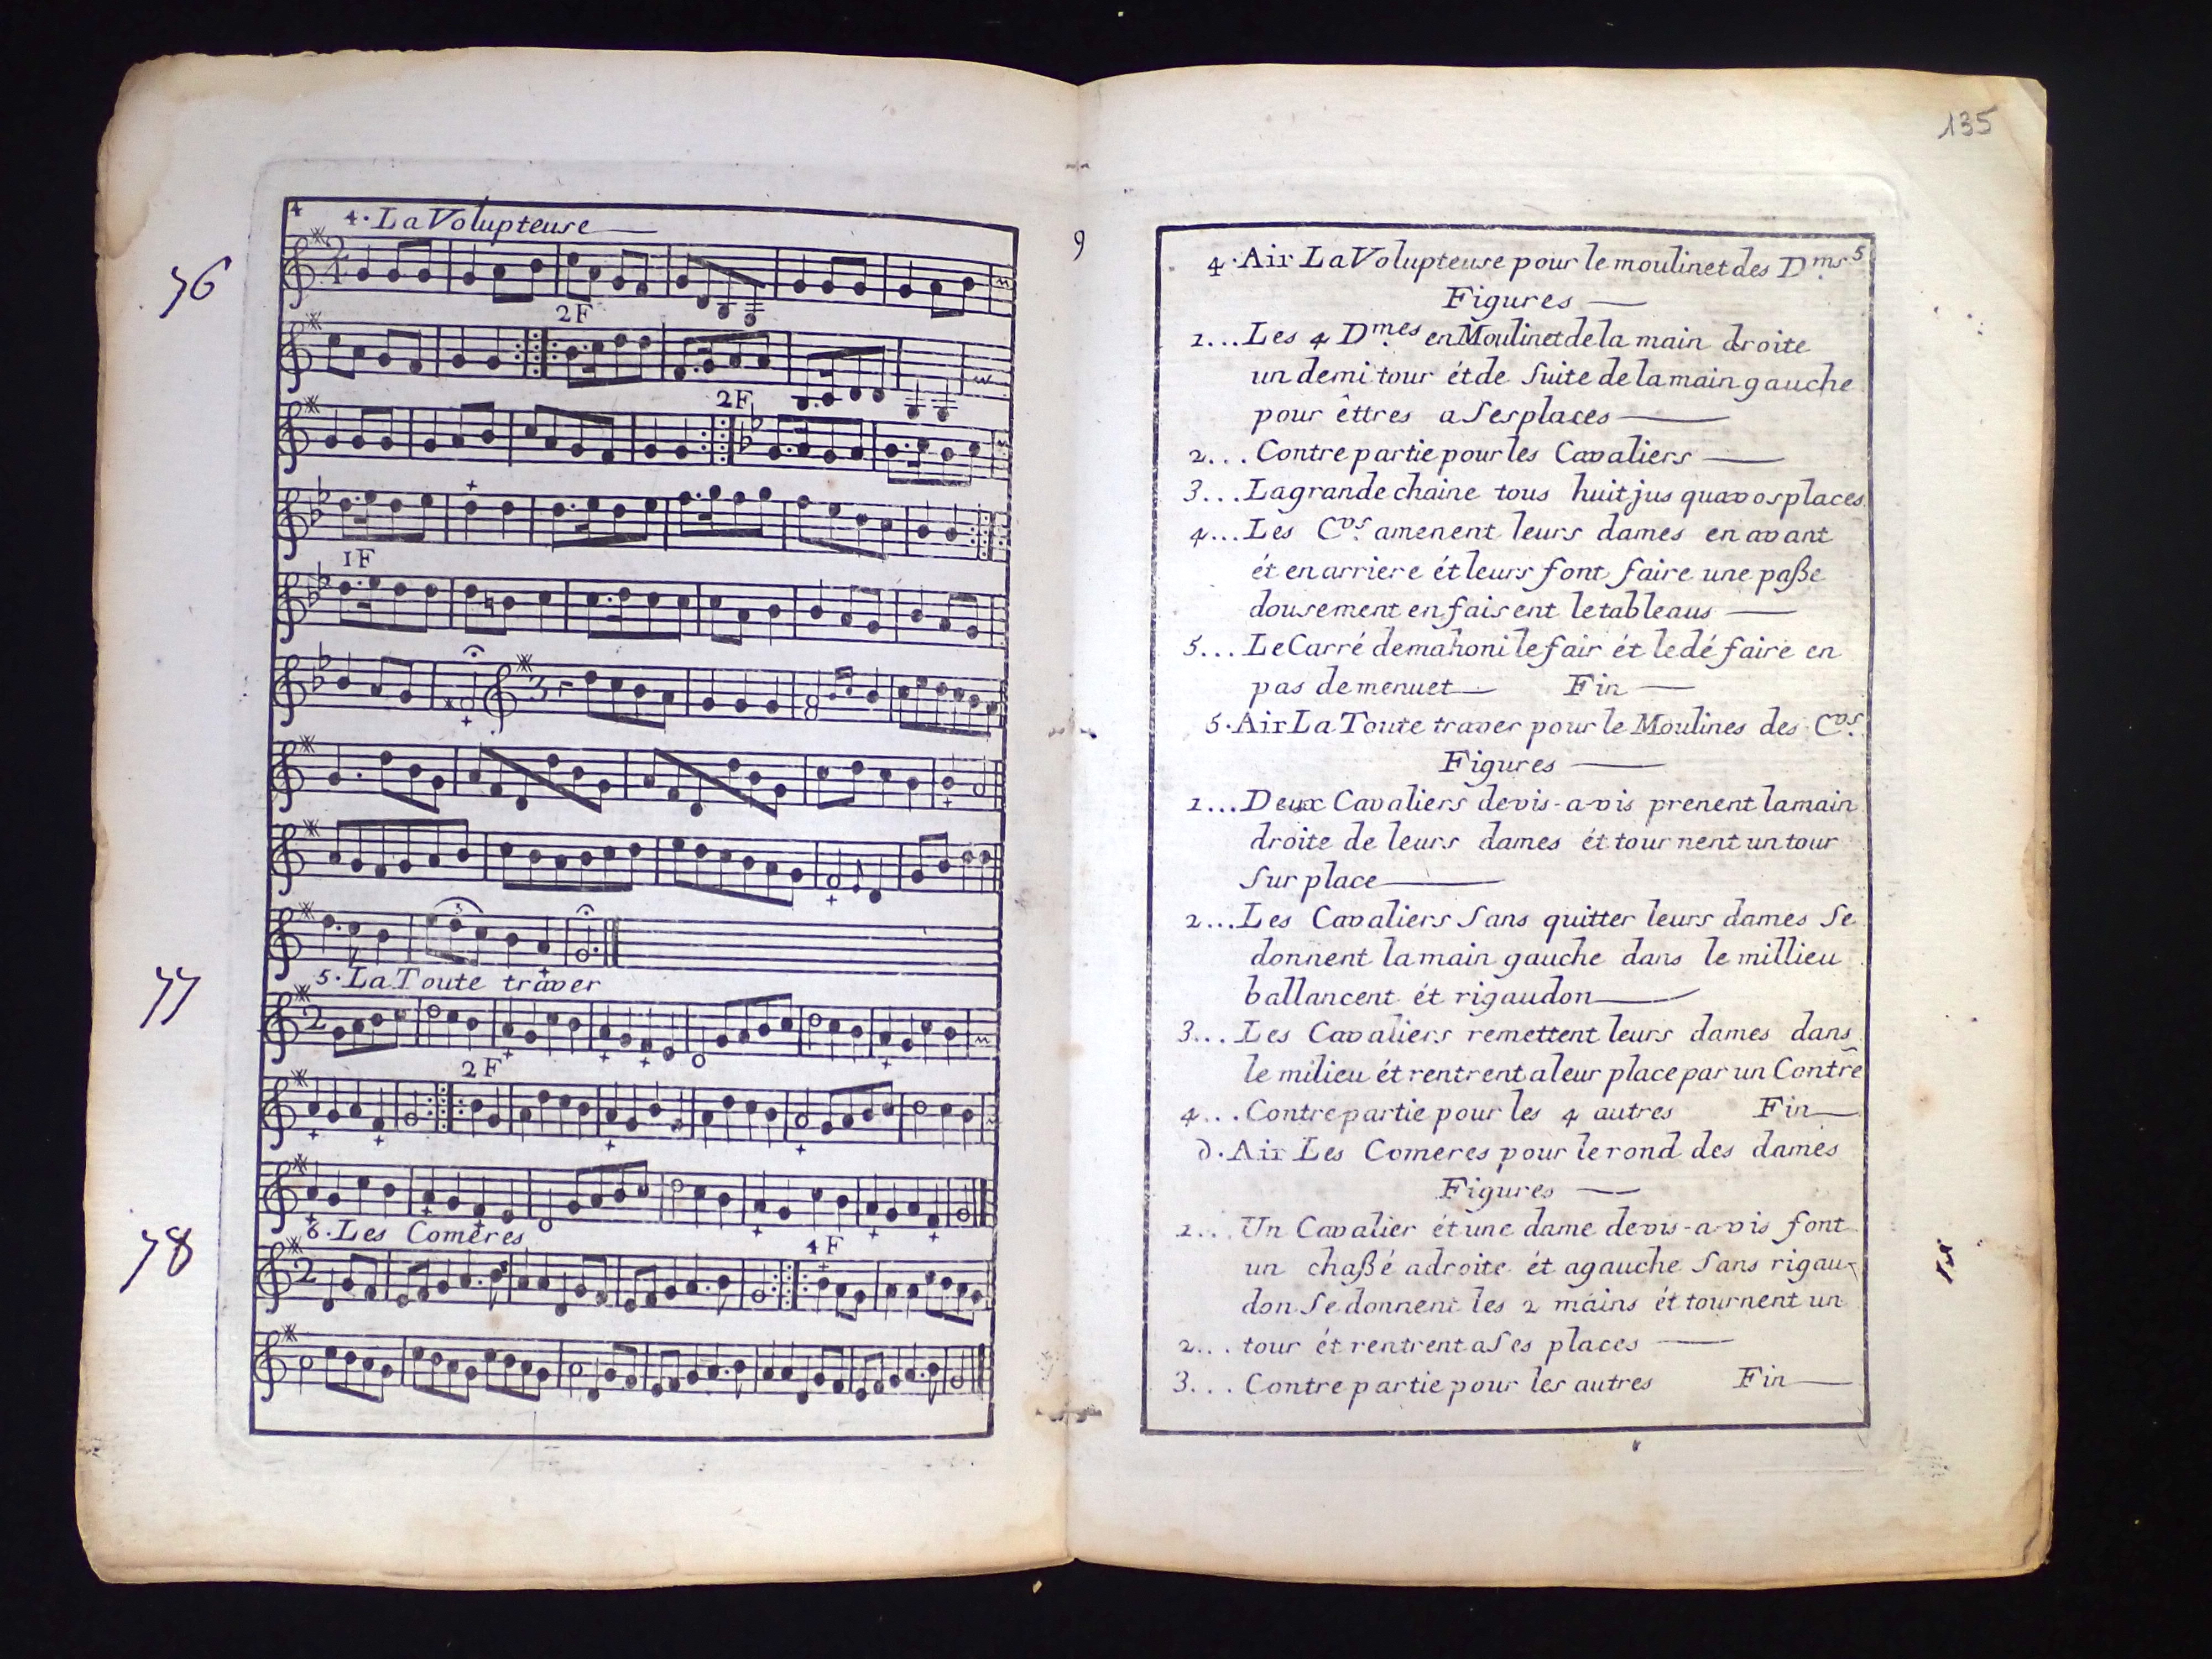 4
4. La Volupteuse
76
2F
2F
1F
5. La Toute traver
77
2F
6. Les Comeres
78
4F
9
135
5
4. Air La Volupteuse pour le moulinet des D.ms
Figures
1... Les 4 D.mes en Moulinet de la main droite
un demi tour ét de Suite de la main gauche
pour êttres a Ses places
2... Contre partie pour les Cavaliers
3... La grande chaine tous huit jus qua vos places
4... Les C.vs amenent leurs dames en avant
ét en arriere ét leurs font faire une paße
dousement en faisent le tableaus
5... Le Carré de mahoni le fair ét le dé faire en
pas de menuet Fin
5. Air La Toute traver pour le Moulines des C.vs
Figures
1... Deux Cavaliers de vis-a-vis prenent la main
droite de leurs dames ét tournent un tour
Sur place
2... Les Cavaliers Sans quitter leurs dames Se
donnent la main gauche dans le millieu
ballancent ét rigaudon
3... Les Cavaliers remettent leurs dames dans
le milieu ét rentrent a leur place par un Contre
4... Contre partie pour les 4 autres Fin
6. Air Les Comeres pour le rond des dames
Figures
1... Un Cavalier ét une dame de vis-a-vis font
un chaßé a droite ét a gauche Sans rigau-
don Se donnent les 2 mains ét tournent un
2... tour ét rentrent a Ses places
3... Contre partie pour les autres Fin